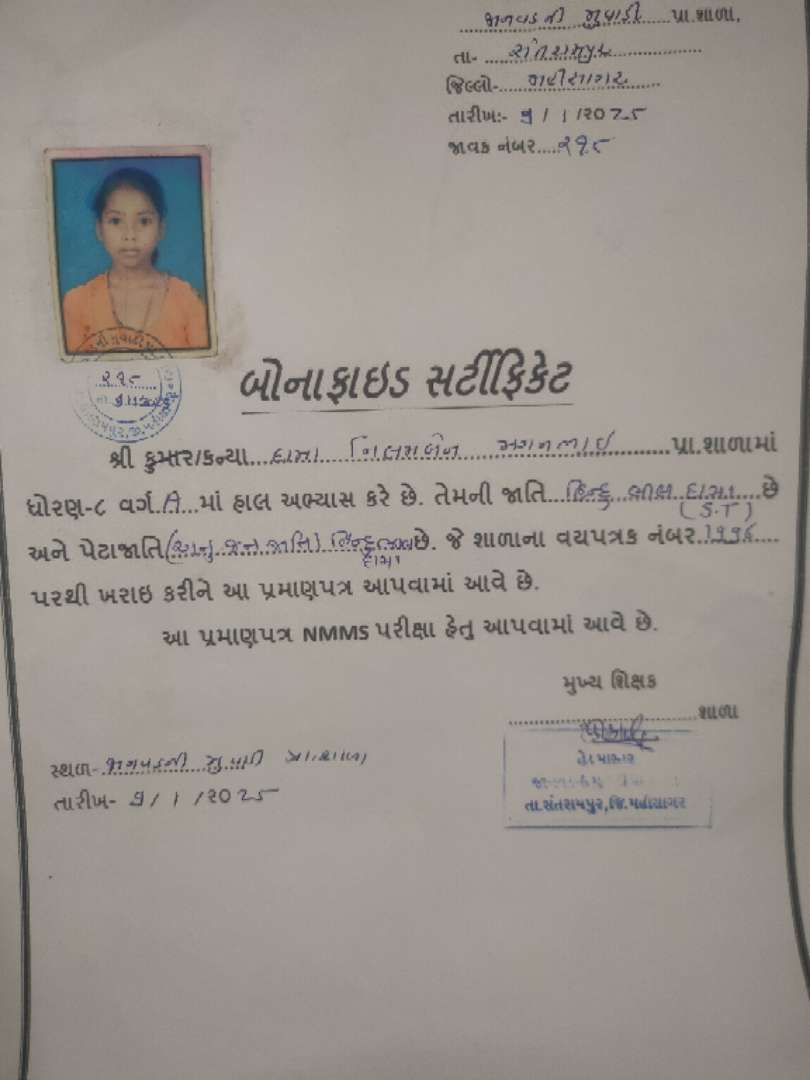 જાનવડની મુવાડી પ્રા.શાળા,
તા- સંતરામપુર
જિલ્લો- મહીસાગર
તારીખ:- ૭ / ૧ /૨૦૨૫
જાવક નંબર....૨૧૮
૨૧૮
બોનાફાઇડ સર્ટીફિકેટ
શ્રી કુમાર/કન્યા...ડામોર મગનભાઈ...પ્રા.શાળામાં
ધોરણ-૮ વર્ગ.A...માં હાલ અભ્યાસ કરે છે. તેમની જાતિ...હિન્દુ ભીલ...છે
(S.T)
અને પેટાજાતિ(અનુ.જન જાતિ) હિન્દુ છે. જે શાળાના વયપત્રક નંબર.૧૧૧૬....
પરથી ખરાઇ કરીને આ પ્રમાણપત્ર આપવામાં આવે છે.
આ પ્રમાણપત્ર NMMS પરીક્ષા હેતુ આપવામાં આવે છે.
મુખ્ય શિક્ષક
શાળા
સ્થળ- જાનવડની મુવાડી પ્રા.શાળા
તારીખ- ૭ / ૧ /૨૦૨૫
તા.સંતરામપુર,જિ.મહીસાગર